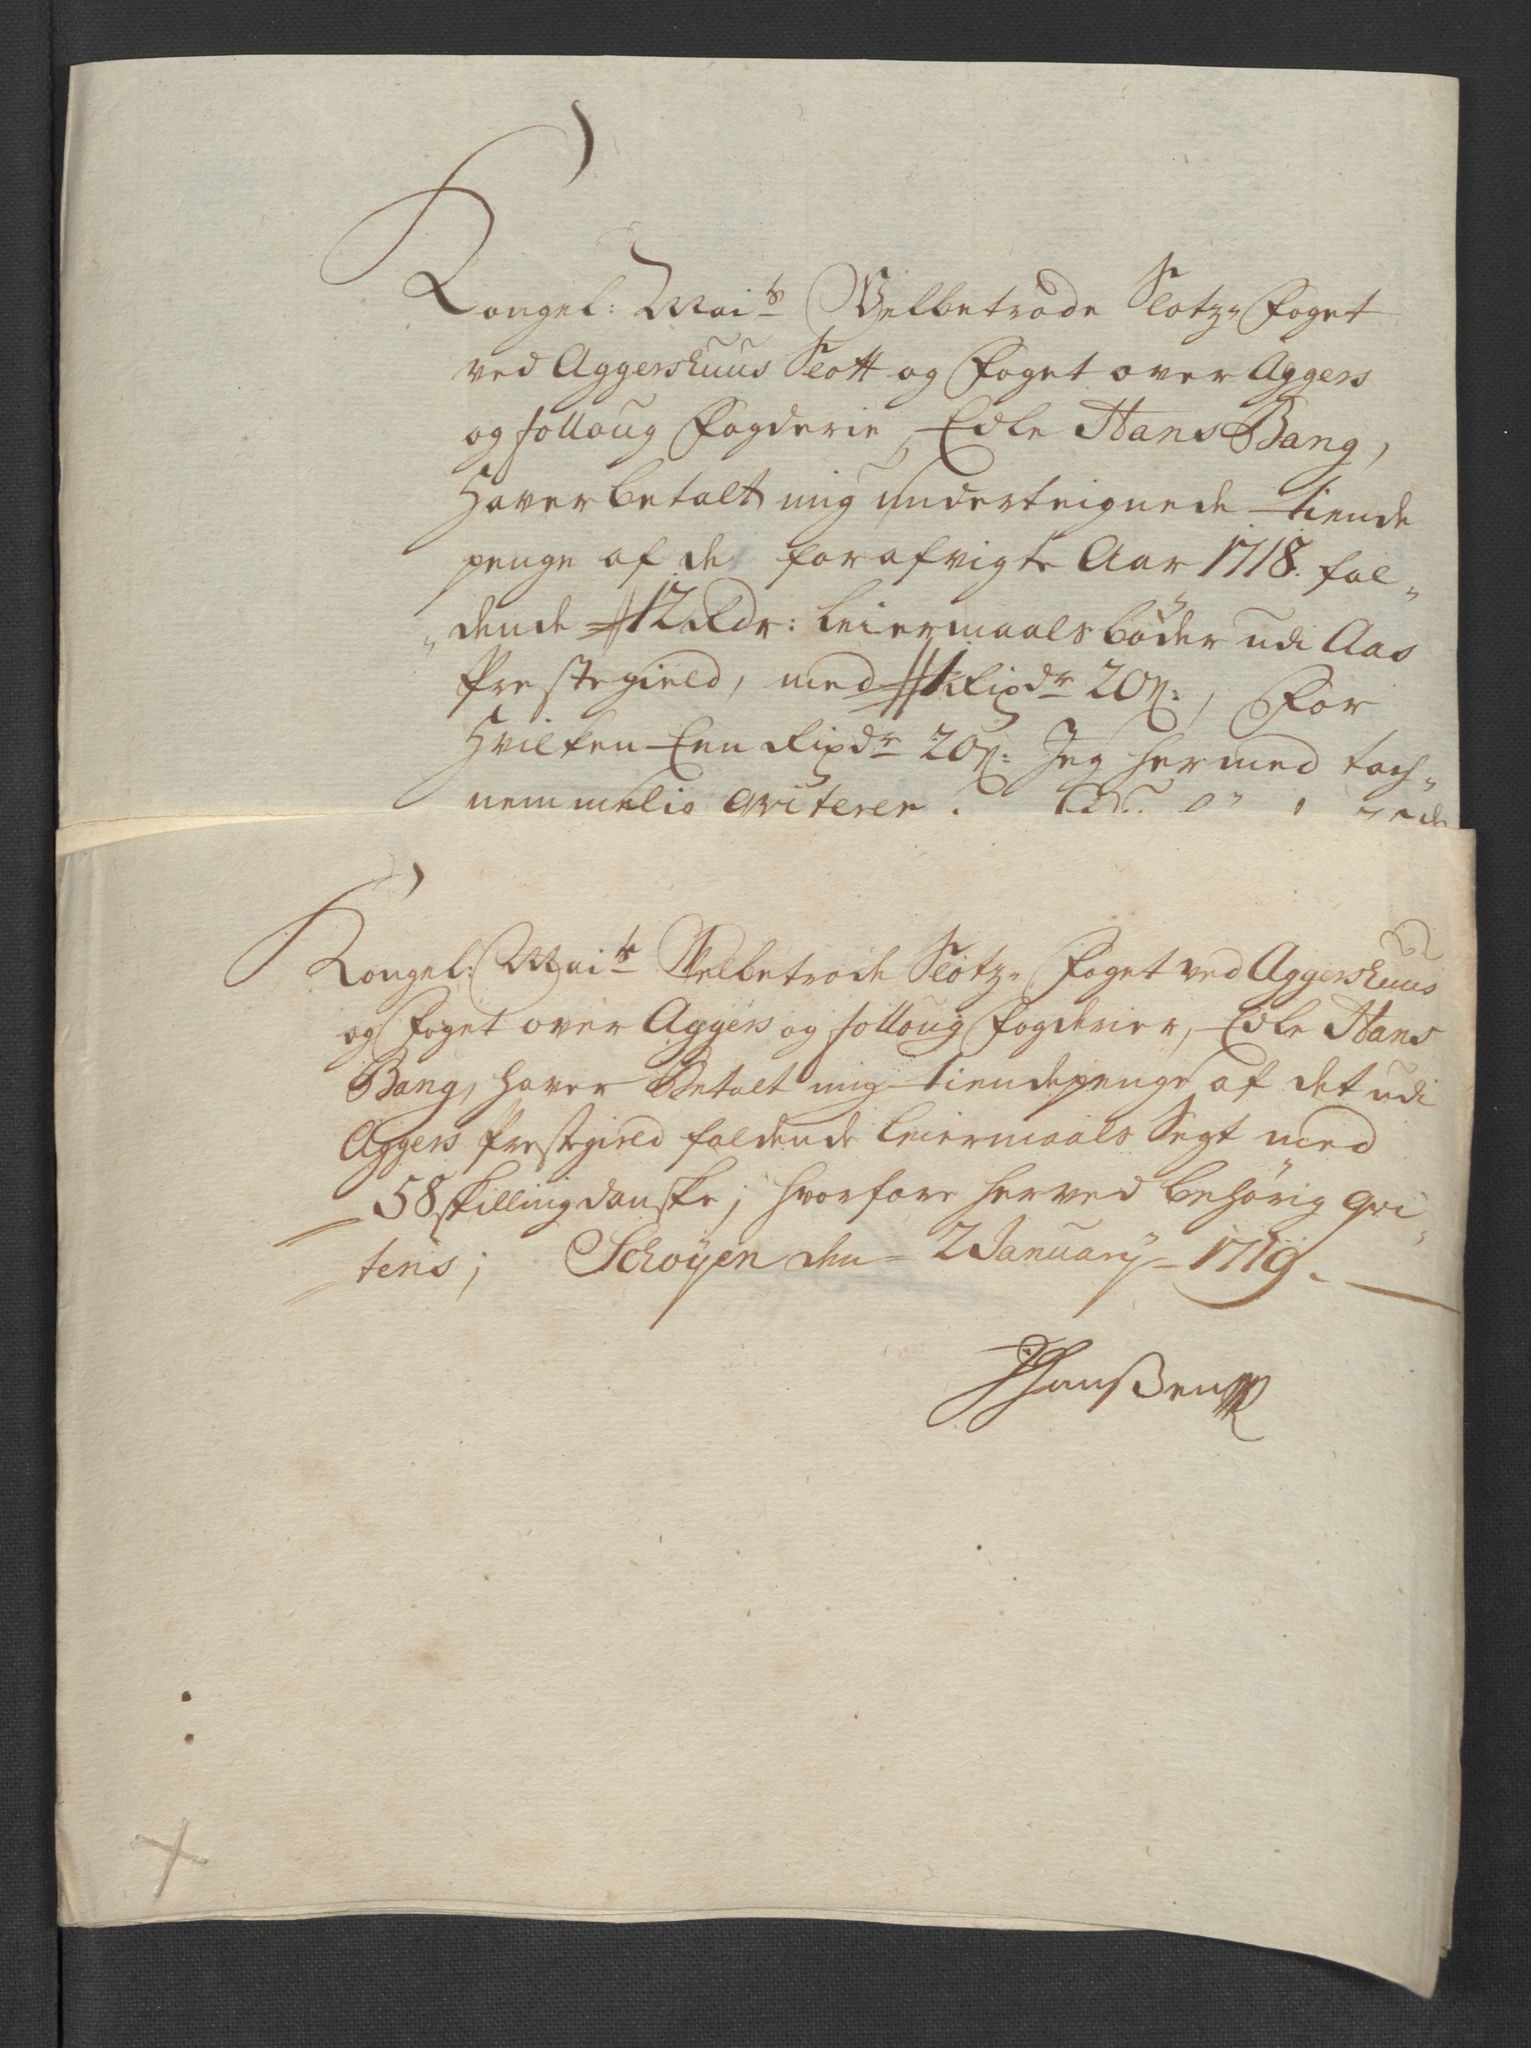 Kongel: Mai:ts Velbetrode Slotz- Foget
ved Aggershuus Slott og Foget over Aggers
og folloug Fogderie, Edle Hans Bang,
Haver betalt mig underteignede tiende
penge af de for afvigte Aar 1718. fal-
dende 12 Rdr: leiermaals bøder udi Aas
Prestegield, med 1 Rixdr 20 ß:, For
Hvilken Een Rixdr 20 ß: Jeg hermed tach-
nemmelig qviterer.
Kongel: Mai:ts Velbetrode Slotz- Foget ved Aggershuus
og Foget over Aggers og folloug Fogderier, Edle Hans
Bang, haver Betalt mig tiendepenge af det udi
Aggers Prestegield faldende leiermaals Sagt med
58 skilling danske; hvorfore herved behörig qvi-
teris; Schøyen den 2 January 1719.
Hanßen